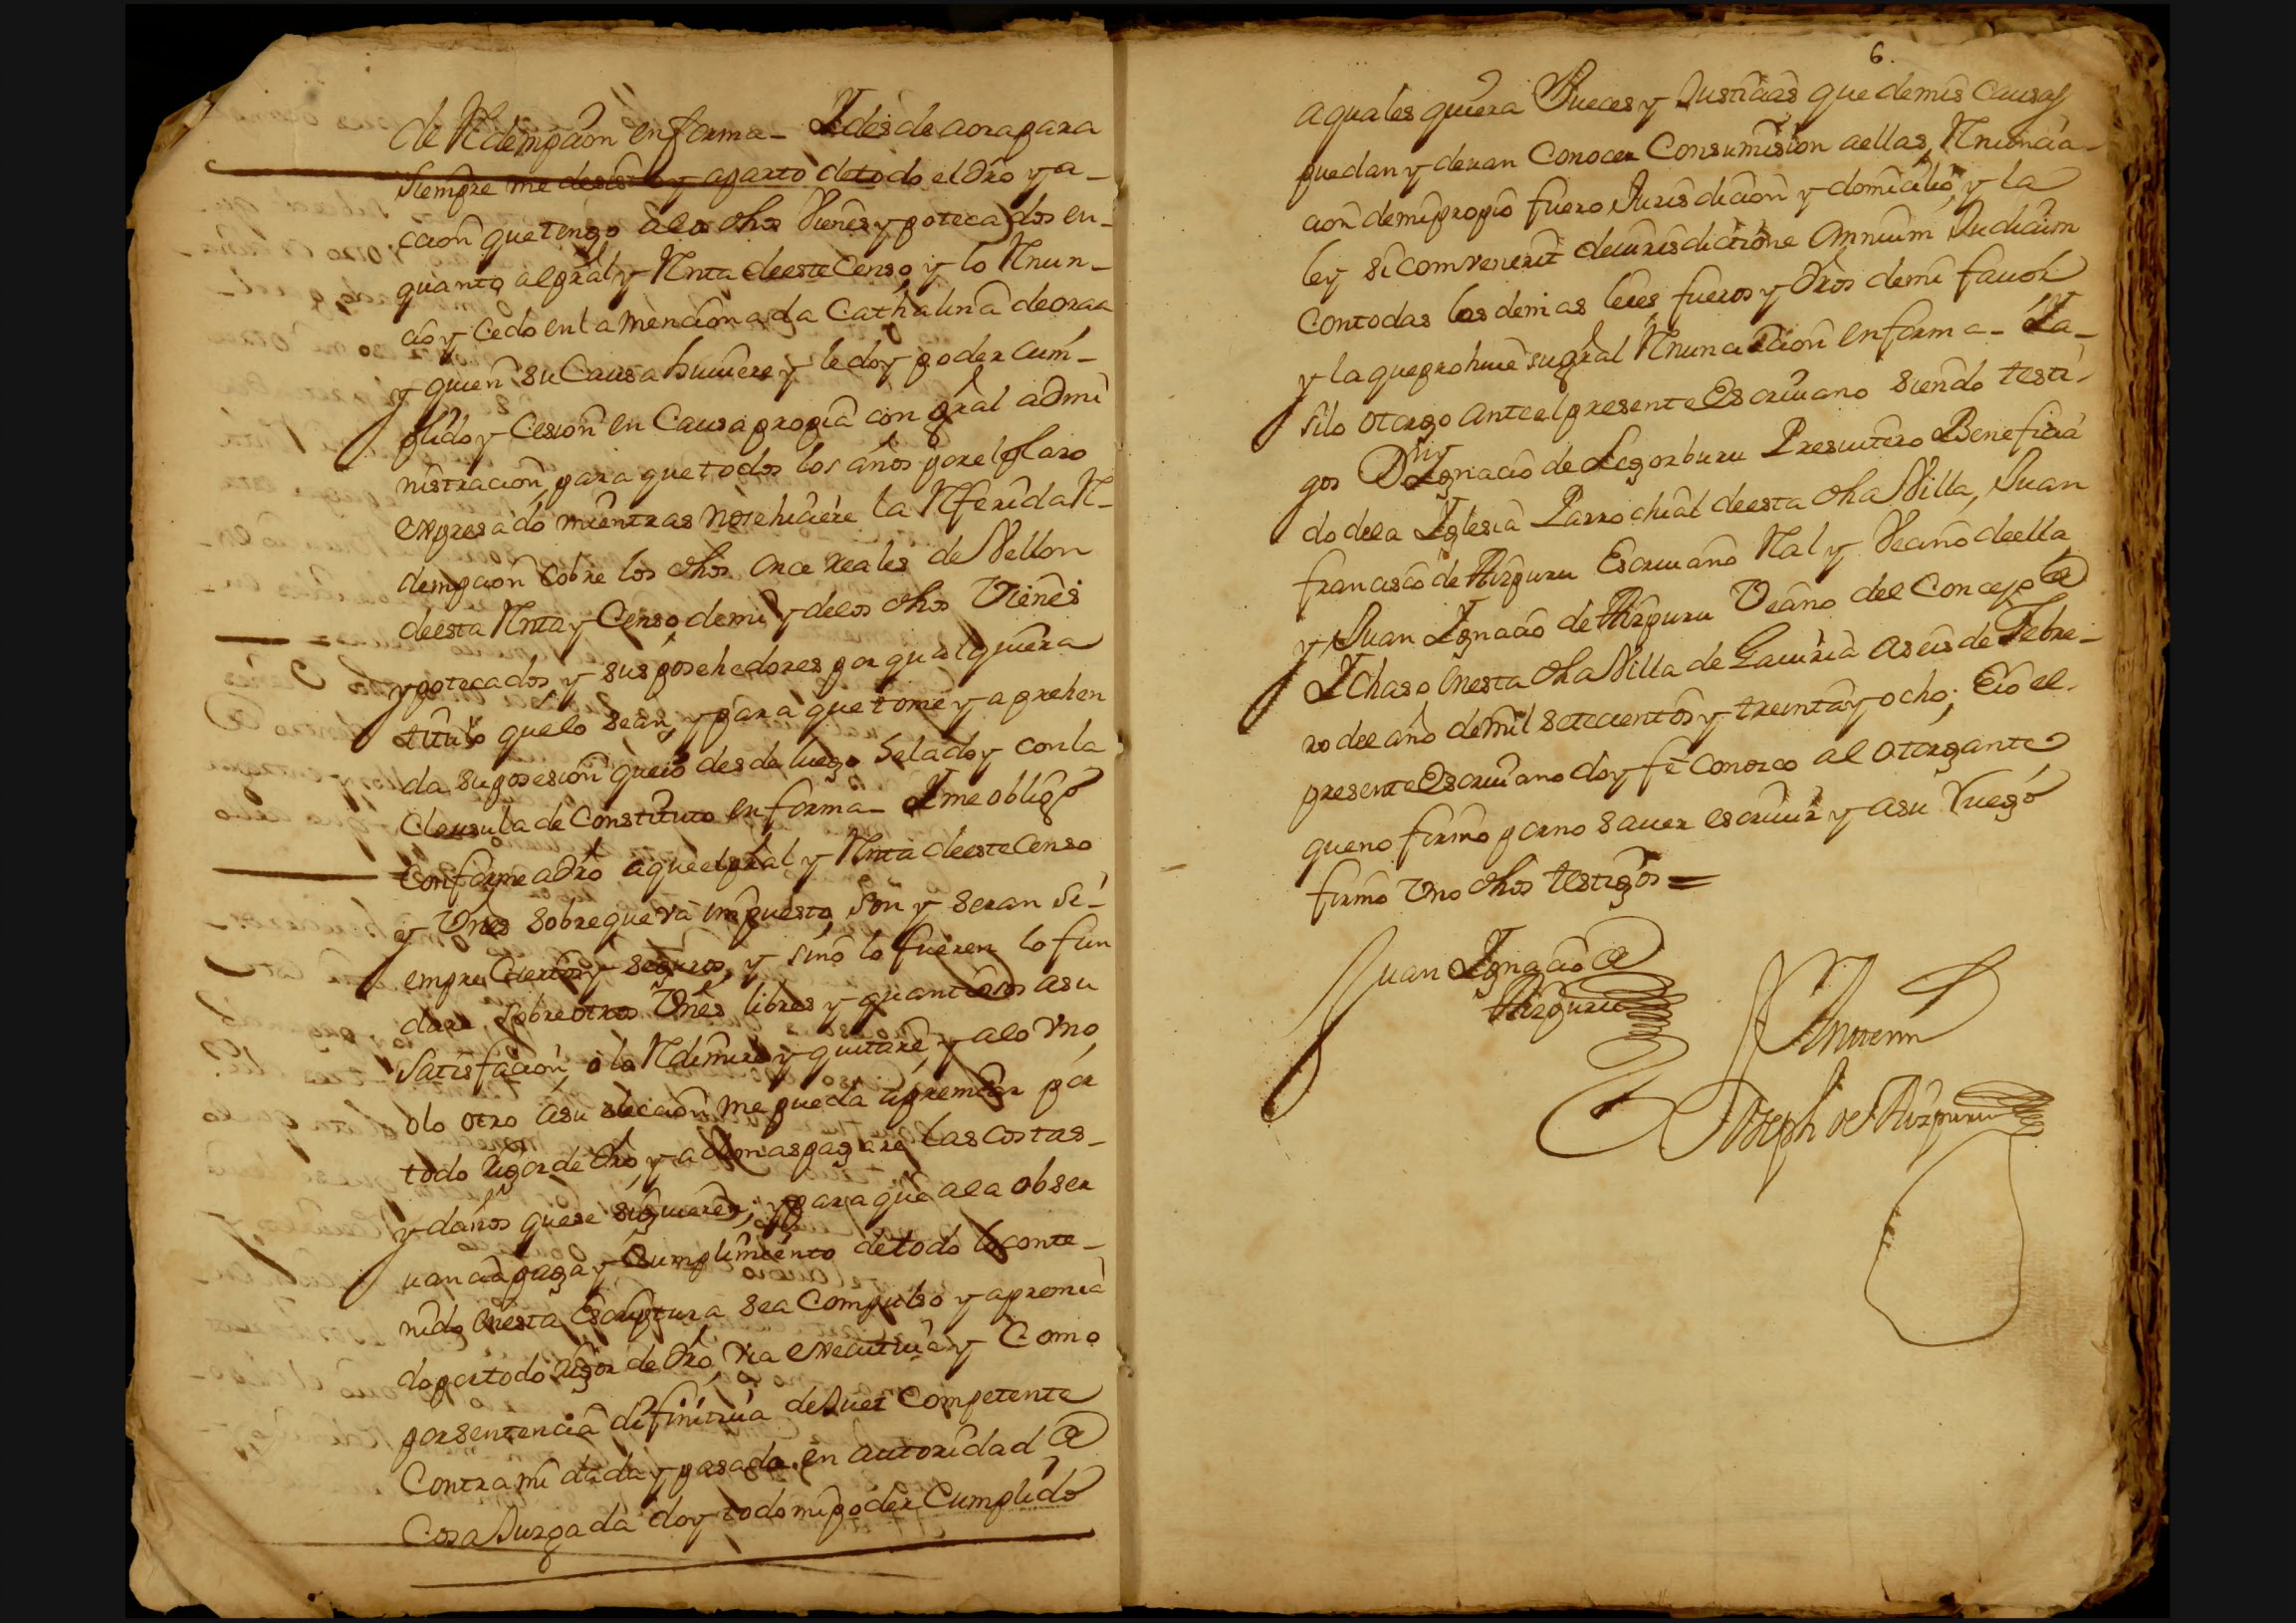 de Redempcion en forma – Y desde aora para
siempre me desisto y aparto de todo el dro y a-
ccion que tengo a los dhos vienes ypotecados en-
quanto al pral y Renta de este Censo y lo Renun-
cio y Cedo en la mencionada Cathalina de oraa
y quien su Causa huuiere y le doy poder cum-
plido y Cesion en Causa propia con gral admi
nistracion para que todos los años por el plaso
expresado mientras no se hiciere la Referida R-
dempcion cobre los dhos once reales de Vellon
de esta Renta y Censo de mi y de los dhos Vienes
ypotecados y sus posehedores por qualquiera
titulo que lo sean, y para que tome y aprehen
da su posesion que io desde luego se la doy con la
Clausula de Constituto en forma – Y me obligo
Conforme a dro a que el pral y Renta de este Censo
y Vnes sobre que va impuesto son y seran Si-
empre Ciertos y seguros, y sino lo fueren lo fun
dare sobre otros Vnes libres y quantiosos a su
satisfacion, o lo Redimire y quitare, y a lo vno
o lo otro a su eleccion me pueda apremiar por
todo rigor de dro, y ademas pagare las costas-
y daños que se siguieren; y para que a la obser
uancia paga y Cumplimiento de todo lo conte-
nido en esta Escriptura sea Compulso y apremia
do por todo rigor de dro, via executiua y Como
por sentencia difinitiua de Juez Competente
Contra mi dada y pasada en autoridad @
Cosa Juzgada doy todo mi poder Cumplido
6.
a quales quiera Jueces y Justicias que de mis causas
puedan y deuan Conocer Con sumision a ellas, Renuncia-
cion de mi propio fuero Jurisdicion y domicilio, y la
ley si comvenerit de iurisdictione Omnium Judicum
Con todas las demas leies fueros y dros de mi fauor
y la que prohiue su gral Renunciacion en forma – Ya-
si lo otorgo ante el presente Escriuano siendo testi-
gos Dn Ygnacio de Legorburu Presuitero Beneficia
do de la Yglesia Parrochial de esta dha Villa, Juan
francisco de Aizpuru Escriuano Ral y Vecino de ella
y Juan Ygnacio de Aizpuru Vecino del Concejo @
Ychaso en esta dha Villa de Gauiria a seis de Febre-
ro del año de mil setecientos y treinta y ocho; E io el-
presente Escriuano doy fe conozco al otorgante
que no firmo por no sauer escriuir y a su Ruego
firmo vno dhos testigos =
Juan Ygnacio @
Aizpuru
Ante mi
Joseph de Aizpuru